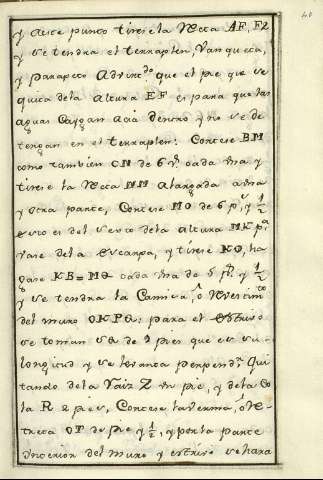 40
y deste punto tirese la Recta AF, FZ
y se tendra el terraplen, Vanqueta,
y parapeto Advirdo. que el pie que se
quita dela Altura EF es para que las
aguas Caygan acia dentro y no se de
tengan en el terraplen. Cortese BM
como tambien CN de 6 ps. cada una y
tirese la Recta MN Alargada a una
y otra parte, Cortese MO de 6 ps. y 1/2
esto es del sexto dela altura MK pa.
vase dela Escarpa, y tirese KO, ha
gase KB = MQ cada una de 5 ps. y 1/2
y se tendra la Camisa, o Revestimto.
del muro OKPQ: para el estrivo
se toman de 2 pies que es su
longitud y se levanta perpendr. Qui
tando dela Raiz Z un pie, y dela Co
la R 2 pies, Cortese la verma, o Re
treta OT de pie y 1/2, y por la parte
interior del muro y estrivo se hara